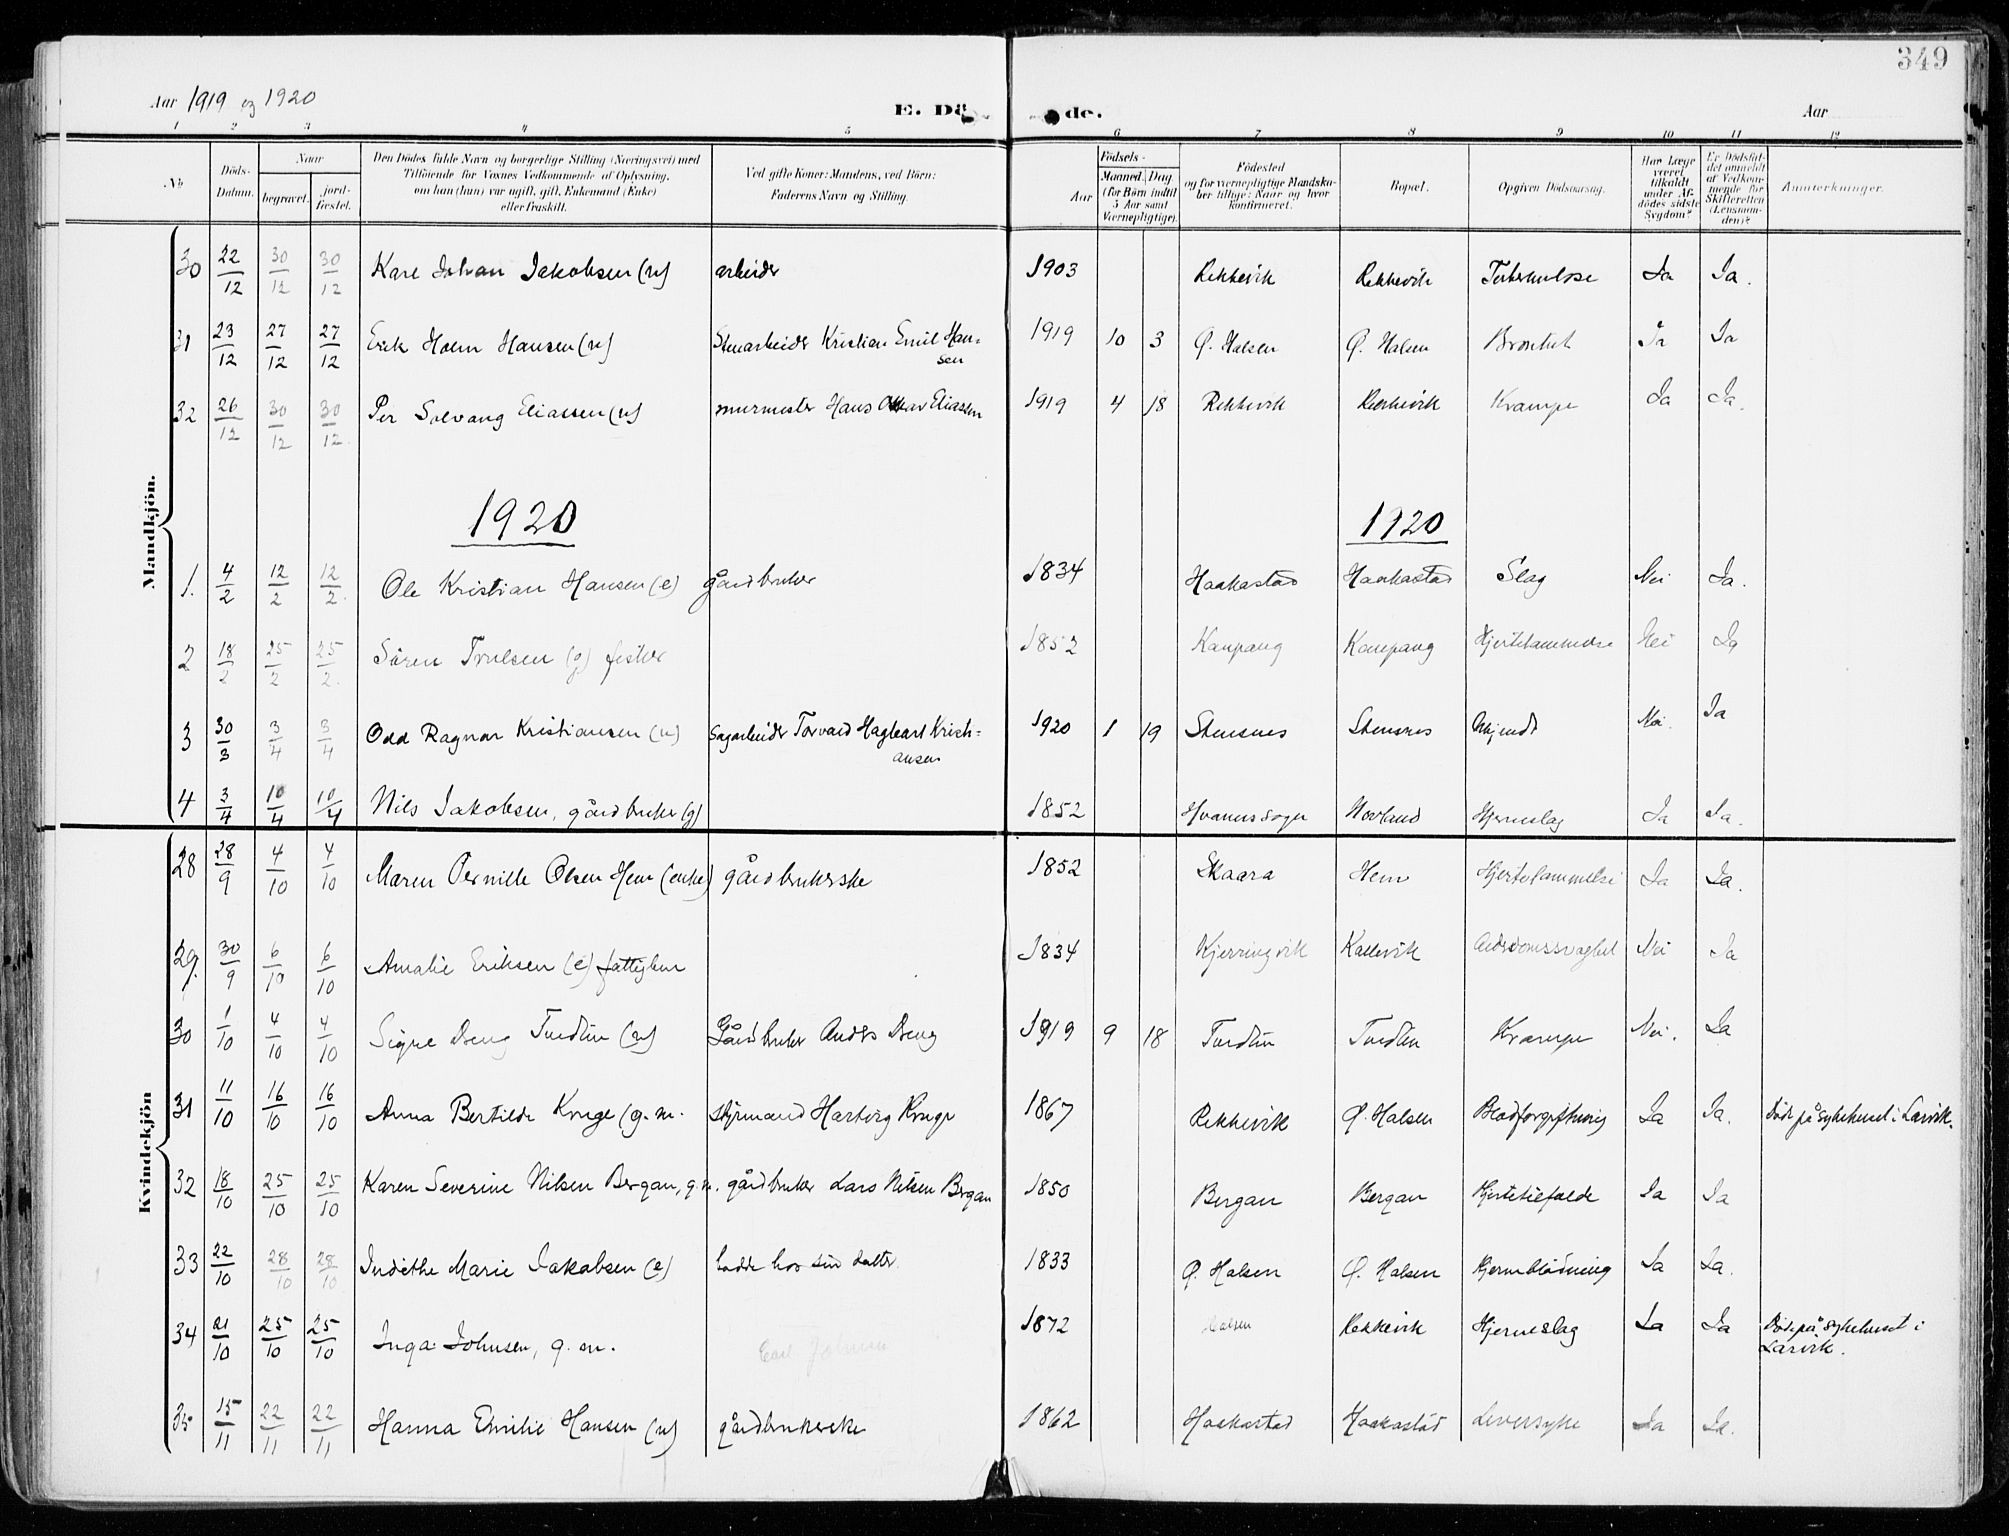 349
Aar 1919 og 1920 E. Dö de. Aar
1 2 3 4 5 6 7 8 9 10 11 12
No Döds-Datum. Naar begravet. jord-fæstet. Den Dödes fulde Navn og borgerlige Stilling (Næringsvei) med Tilföiende for Voxnes Vedkommende af Oplysning, om han (hun) var ugift, gift, Enkemand (Enke) eller fraskilt. Ved gifte Koner: Mandens, ved Börn: Faderens Navn og Stilling. Födsels- Aar Maaned. Dag (for Börn indtil 5 Aar samt Værnepligtige). Födested og for værnepligtige Mandskaber tillige: Naar og hvor konfirmeret. Bopæl. Opgiven Dödsaarsag. Har Læge været tilkaldt under Afdödes sidste Sygdom? Er Dödsfaldet anmeldt af Vedkommende for Skifteretten (Lensmanden)? Anmerkninger.
Mandkjön.
30 22/12 30/12 30/12 Karl Johan Jakobsen (u) arbeider 1903 Rekkevik Rekkevik Tuberkulose Ja Ja.
31 23/12 27/12 27/12 Erik Holm Hansen (u) Stenarbeider Kristian Emil Han-
sen 1919 10 3 Ø. Halsen Ø. Halsen Bronkit Ja Ja
32 26/12 30/12 30/12 Per Solvang Eliassen (u) murmester Hans Oskar Eliassen 1919 4 18 Rekkevik Rekkevik Krampe Ja Ja.
1920 1920
1. 4/2 12/2 12/2 Ole Kristian Hansen (e) gårdbruker 1834 Haakastad Haakastad Slag Nei Ja.
2 18/2 25/2 25/2 Sören Trulsen (g) fisker 1852 Kaupang Kaupang Hjertelammelse Nei Ja
3 30/3 3/4 3/4 Odd Ragnar Kristiansen (u) Sagarbeider Torvald Hagbart Kristi-
ansen 1920 1 19 Stensnes Stensnes Ukjendt Nei. Ja
4 3/4 10/4 10/4 Nils Jakobsen, gårdbruker (g) 1852 Hvarnes sogn Hovland Hjerneslag Ja Ja.
Kvindekjön
28 28/9 4/10 4/10 Maren Pernille Olsen Hem (enke) gårdbrukerske 1852 Skaara Hem Hjertelammelse Ja Ja.
29. 30/9 6/10 6/10 Amalie Eriksen (e) fattiglem 1834 Kjerringvik Kallevik Alderdomssvaghet Nei Ja
30 1/10 4/10 4/10 Signe Breng Tvedlin (u) Gårdbruker Anders Breng 1919 9 18 Tvedlin Tvedlin Krampe Nei. Ja
31 11/10 16/10 16/10 Anna Bertilde Kruge (g.m. styrmand Hartvig Kruge 1867 Rekkevik Ø. Halsen Blodforgiftning Ja Ja. Døde på sykehuset i Larvik.
32 18/10 25/10 25/10 Karen Severine Nilsen Bergan, g.m. gårdbruker Lars Nilsen Bergan 1850 Bergan Bergan Hjertetilfælde Ja Ja
33 22/10 28/10 28/10 Indethe Marie Jakobsen (e) bodde hos sin datter. 1833 Ø. Halsen Ø. Halsen Hjerneblødning Ja Ja.
34 21/10 25/10 25/10 Inga Johnsen, g.m. Carl Johnsen 1872 Halsen Rekkevik Hjerneslag Ja Ja Døde på sykehuset i
Larvik.
35 15/11 22/11 22/11 Hanna Emilie Hansen (u) gårdbrukerske 1862 Haakastad Haakastad Leversyke Ja Ja.